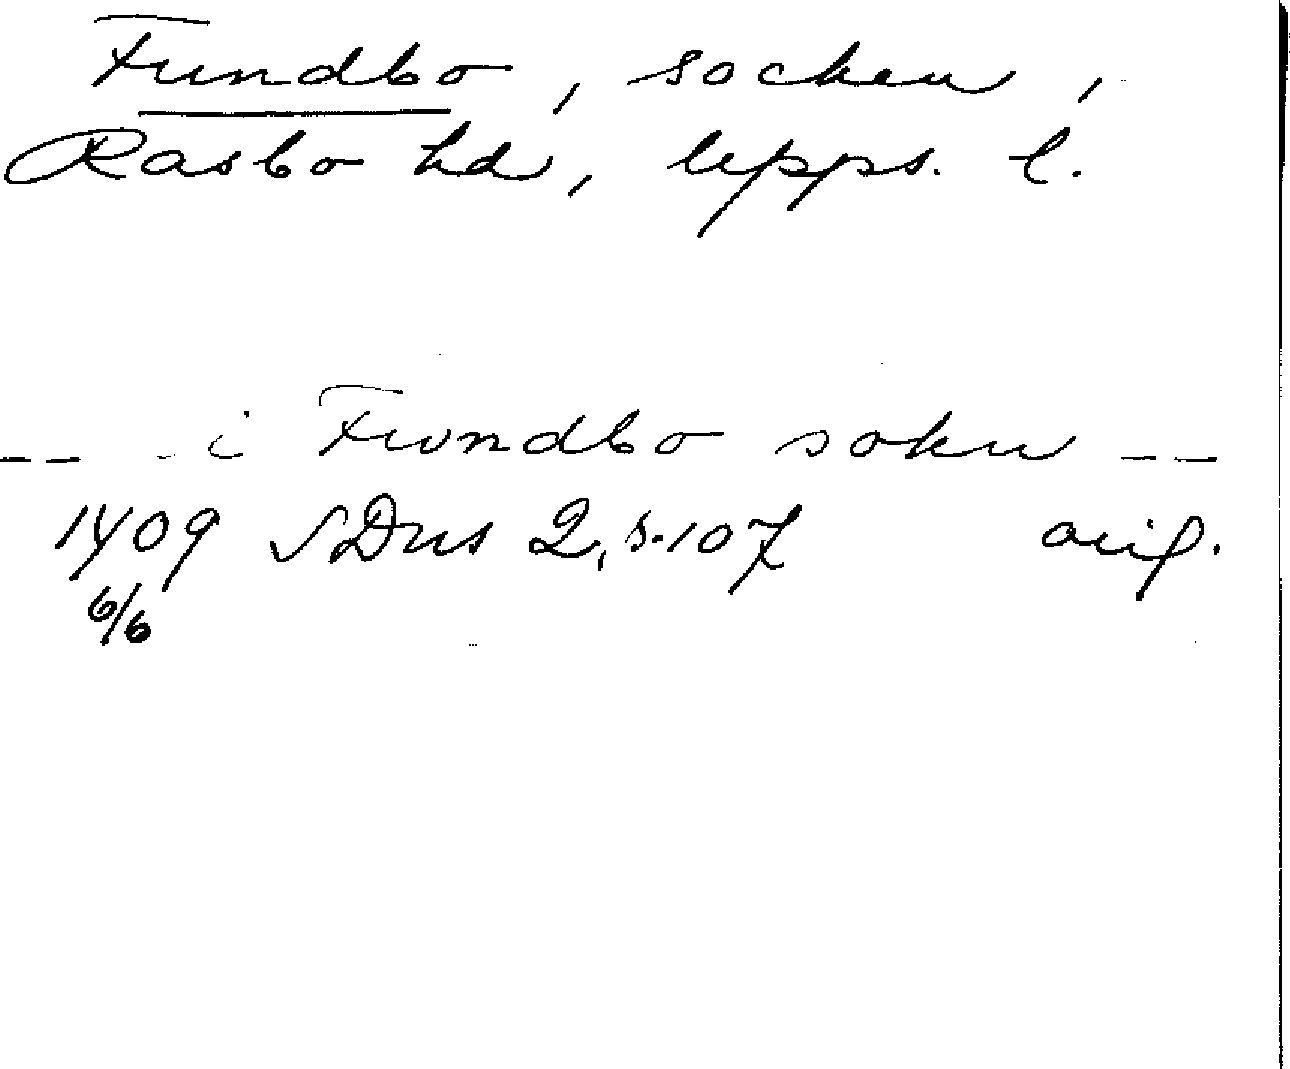 Fundbo, socken,
Rasbo hd, Upps. l.
-- - i Fwndbo sokn --
1409 SDns 2, s. 107 orig.
6/6